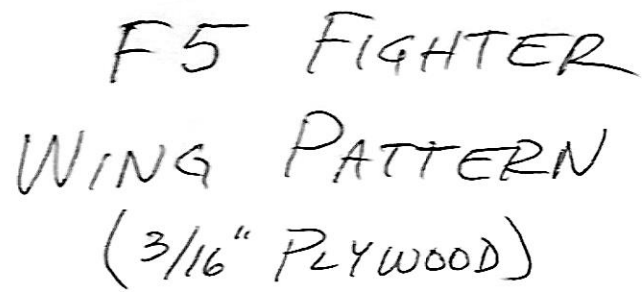 F5 FIGHTER
WING PATTERN
(3/16" PLYWOOD)